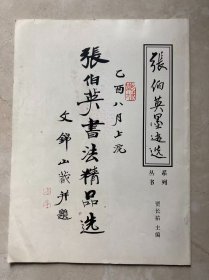 張伯英墨迹选
系列
丛书
贾长祐 主编
乙酉八月上浣
張伯英書法精品选
文錦山敬題